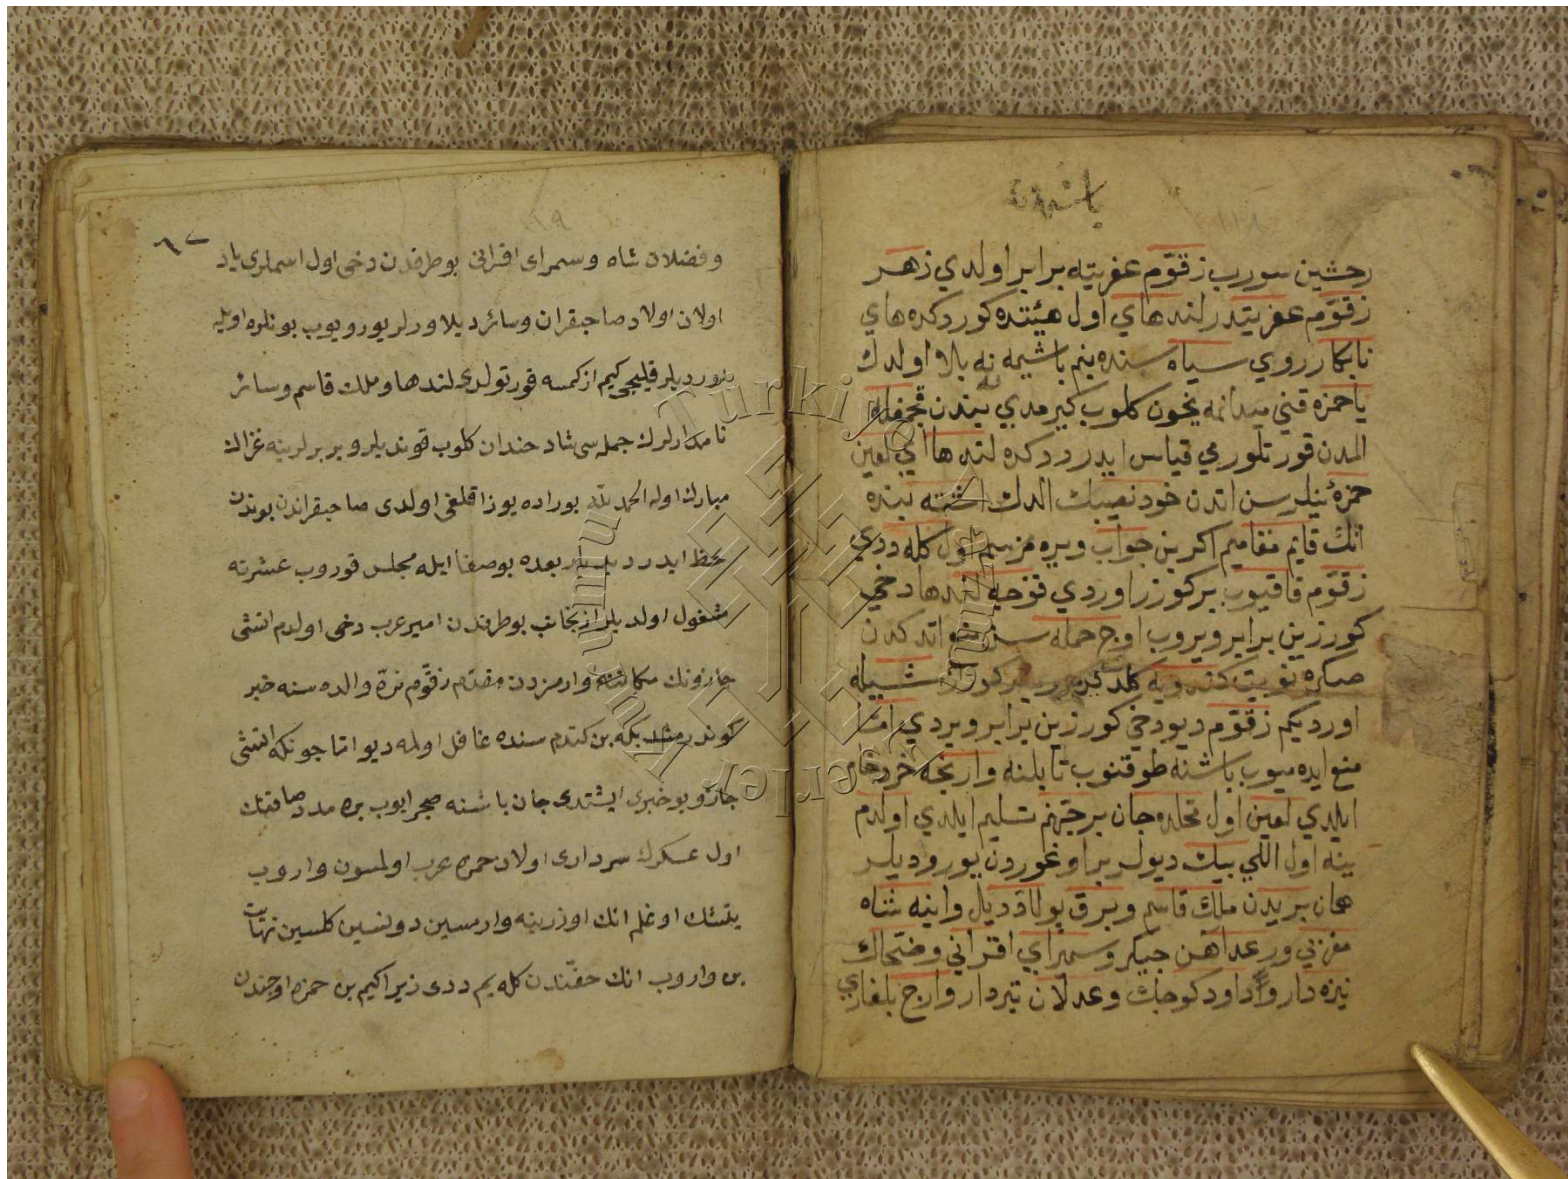 رحشين سورب زقوم عفريته برابر اولدي زهر
زقوم عفريتدر لندهاي اول هيئتده كوردكده هاي
نابكار روي سياه سنده بنم باشيمه نه بلا اولدك
ياحمزه قني ميدانمه نيچون كلوب كيرمدي بندن
المدن قورتلورمي قياس ايدر ددكده لندها اي لعين
حمزه نيلرسن اتدن خود نصيبك الدك اشته بنده
انك قايم مقاميم اكر بن جواب ويره مزسم اول كله ددي
زقوم قاقيوب بر كورز اوردي قوجه لندها دخي
كورزين برابر ويروب اوچ حمله سن اتدكدن
صكره نوبت كندويه كلدكده
اورديكم زقوم ديو دخي كورزين برابر ويردي اما
منع ايده ميوب باشنه طوقنوب تابلنه وارنجه خردخام
ايلدي لعين اول محلده جان بر جهنم تسليم ايلدي اولدم
ينه اول اللي بيك ديولر بر اوغوردن يورودیلر
همان بريدن ملك قاسم وبرق بولاد ديال وابنه شاه
مغربي ورعد اهن جيكر وسمراي اقراني وضحاك
نيزه دار وداود كوجك وعدلان تبردار وارج بلغاري
٦٧
وفضلان شاه وسمراى اقرانى بوطرفدن دخى اول اسملرى ياد
اولان اولاد صاحبقران وسائر ديلاورلر يورويوب بونلره اويله
اورديلر قليجى كيم از كمسه قورتولدى لندها وملك قاسم وسائر
نامدارلرك جمله سى شاد خندان كلوب قونديلر وبر برلرينه غزاك
مبارك اوله الحمد لله بوراده يوز اقلغى اولدى صاحبقراندن بوندن
حظ ايدر ديديلر بعده بوصفا ايله مجلس قوروب عشرته
مشغول اولديلر ازيجانب بوطرفدن امير عرب دخى اولدم انتنى
جازونك مكاننه وارمزدن مقدم زقوم نره والده سنه خبر
كوندرمشديكه بن كتدم سنده غافل اولمه ديو اما چونكه انتنى
جازو بو خبرى ايشتدى جان باشنه صچرايوب بره مدد صاقنك
اول عسكرك سردارى اولان حمزه عرب اولمسون واروب
يتشك اوغلم انك اوزرينه وارمسين دونسين كلسين نهايت
بن واروب انك حقندن كله يم ددى زيرا كيم بن حمزه اوجندن